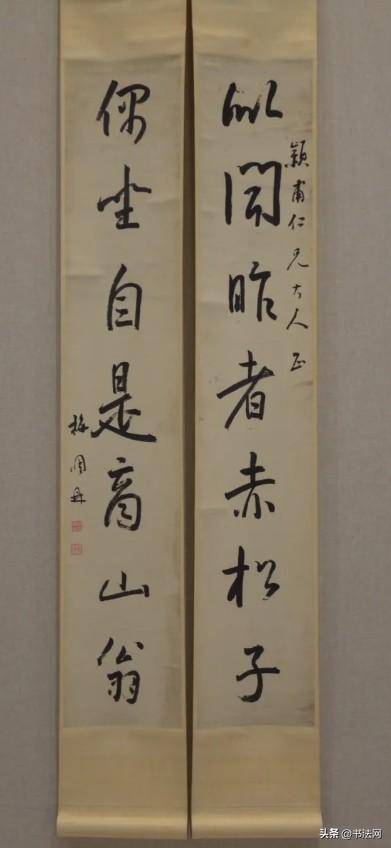 似聞昨者赤松子
穎甫仁兄大人正
偶坐自是商山翁
梅調鼎
头条@书法网